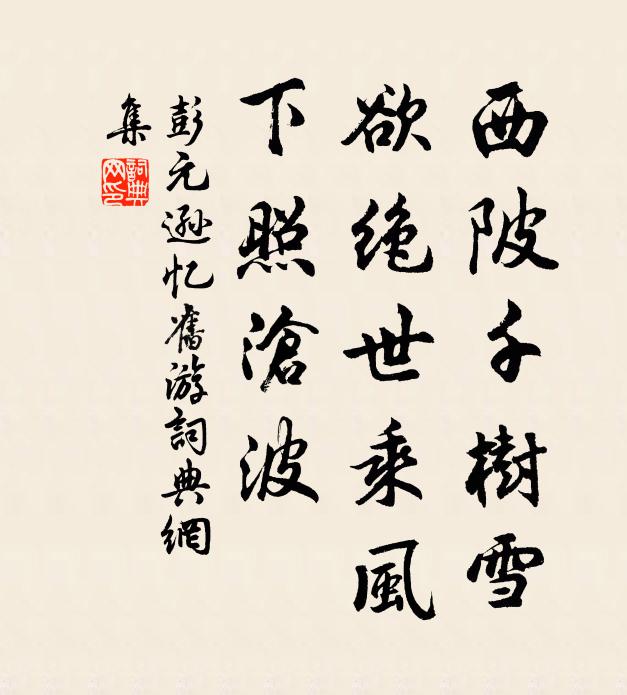 西陂千樹雪
欲绝世乘風
下照滄波
彭元遜忆舊游詞典網
集
詞典
网印